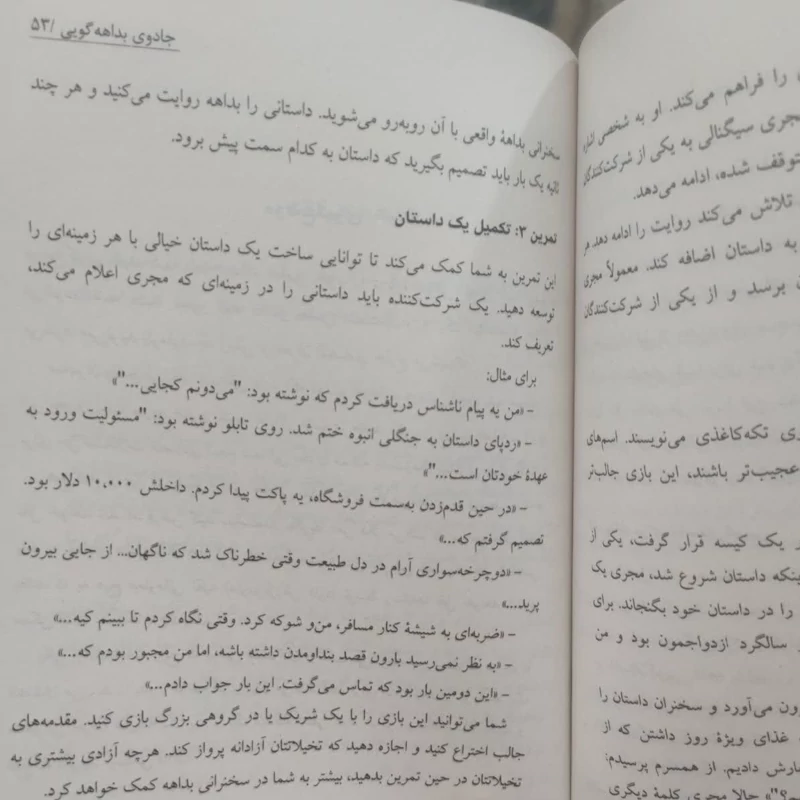 جادوی بداهه‌گویی /۵۳
سخنرانی بداههٔ واقعی با آن روبه‌رو می‌شوید. داستانی را بداهه روایت می‌کنید و هر چند
ثانیه یک بار باید تصمیم بگیرید که داستان به کدام سمت پیش برود.
تمرین ۳: تکمیل یک داستان
این تمرین به شما کمک می‌کند تا توانایی ساخت یک داستان خیالی با هر زمینه‌ای را
توسعه دهید. یک شرکت‌کننده باید داستانی را در زمینه‌ای که مجری اعلام می‌کند،
تعریف کند.
برای مثال:
- «من یه پیام ناشناس دریافت کردم که نوشته بود: "می‌دونم کجایی..."»
- «ردپای داستان به جنگلی انبوه ختم شد. روی تابلو نوشته بود: "مسئولیت ورود به
عهدهٔ خودتان است..."»
- «در حین قدم‌زدن به‌سمت فروشگاه، یه پاکت پیدا کردم. داخلش ۱۰،۰۰۰ دلار بود.
تصمیم گرفتم که...»
- «دوچرخه‌سواری آرام در دل طبیعت وقتی خطرناک شد که ناگهان... از جایی بیرون
پرید...»
- «ضربه‌ای به شیشهٔ کنار مسافر، من‌و شوکه کرد. وقتی نگاه کردم تا ببینم کیه...»
- «به نظر نمی‌رسید بارون قصد بنداومدن داشته باشه، اما من مجبور بودم که...»
- «این دومین بار بود که تماس می‌گرفت. این بار جواب دادم...»
شما می‌توانید این بازی را با یک شریک یا در گروهی بزرگ بازی کنید. مقدمه‌های
جالب اختراع کنید و اجازه دهید که تخیلاتتان آزادانه پرواز کند. هرچه آزادی بیشتری به
تخیلاتتان در حین تمرین بدهید، بیشتر به شما در سخنرانی بداهه کمک خواهد کرد.
را فراهم می‌کند. او به شخصی اشاره
مجری سیگنالی به یکی از شرکت‌کنندگان
متوقف شده، ادامه می‌دهد.
تلاش می‌کند روایت را ادامه دهد. هر
به داستان اضافه کند. معمولاً مجری
برسد و از یکی از شرکت‌کنندگان
تکه‌کاغذی می‌نویسند. اسم‌های
عجیب‌تر باشند، این بازی جالب‌تر
یک کیسه قرار گرفت، یکی از
اینکه داستان شروع شد، مجری یک
را در داستان خود بگنجاند. برای
سالگرد ازدواجمون بود و من
می‌آورد و سخنران داستان را
غذای ویژهٔ روز داشتن که از
سفارش دادیم. از همسرم پرسیدم:
حالا مجری کلمهٔ دیگری